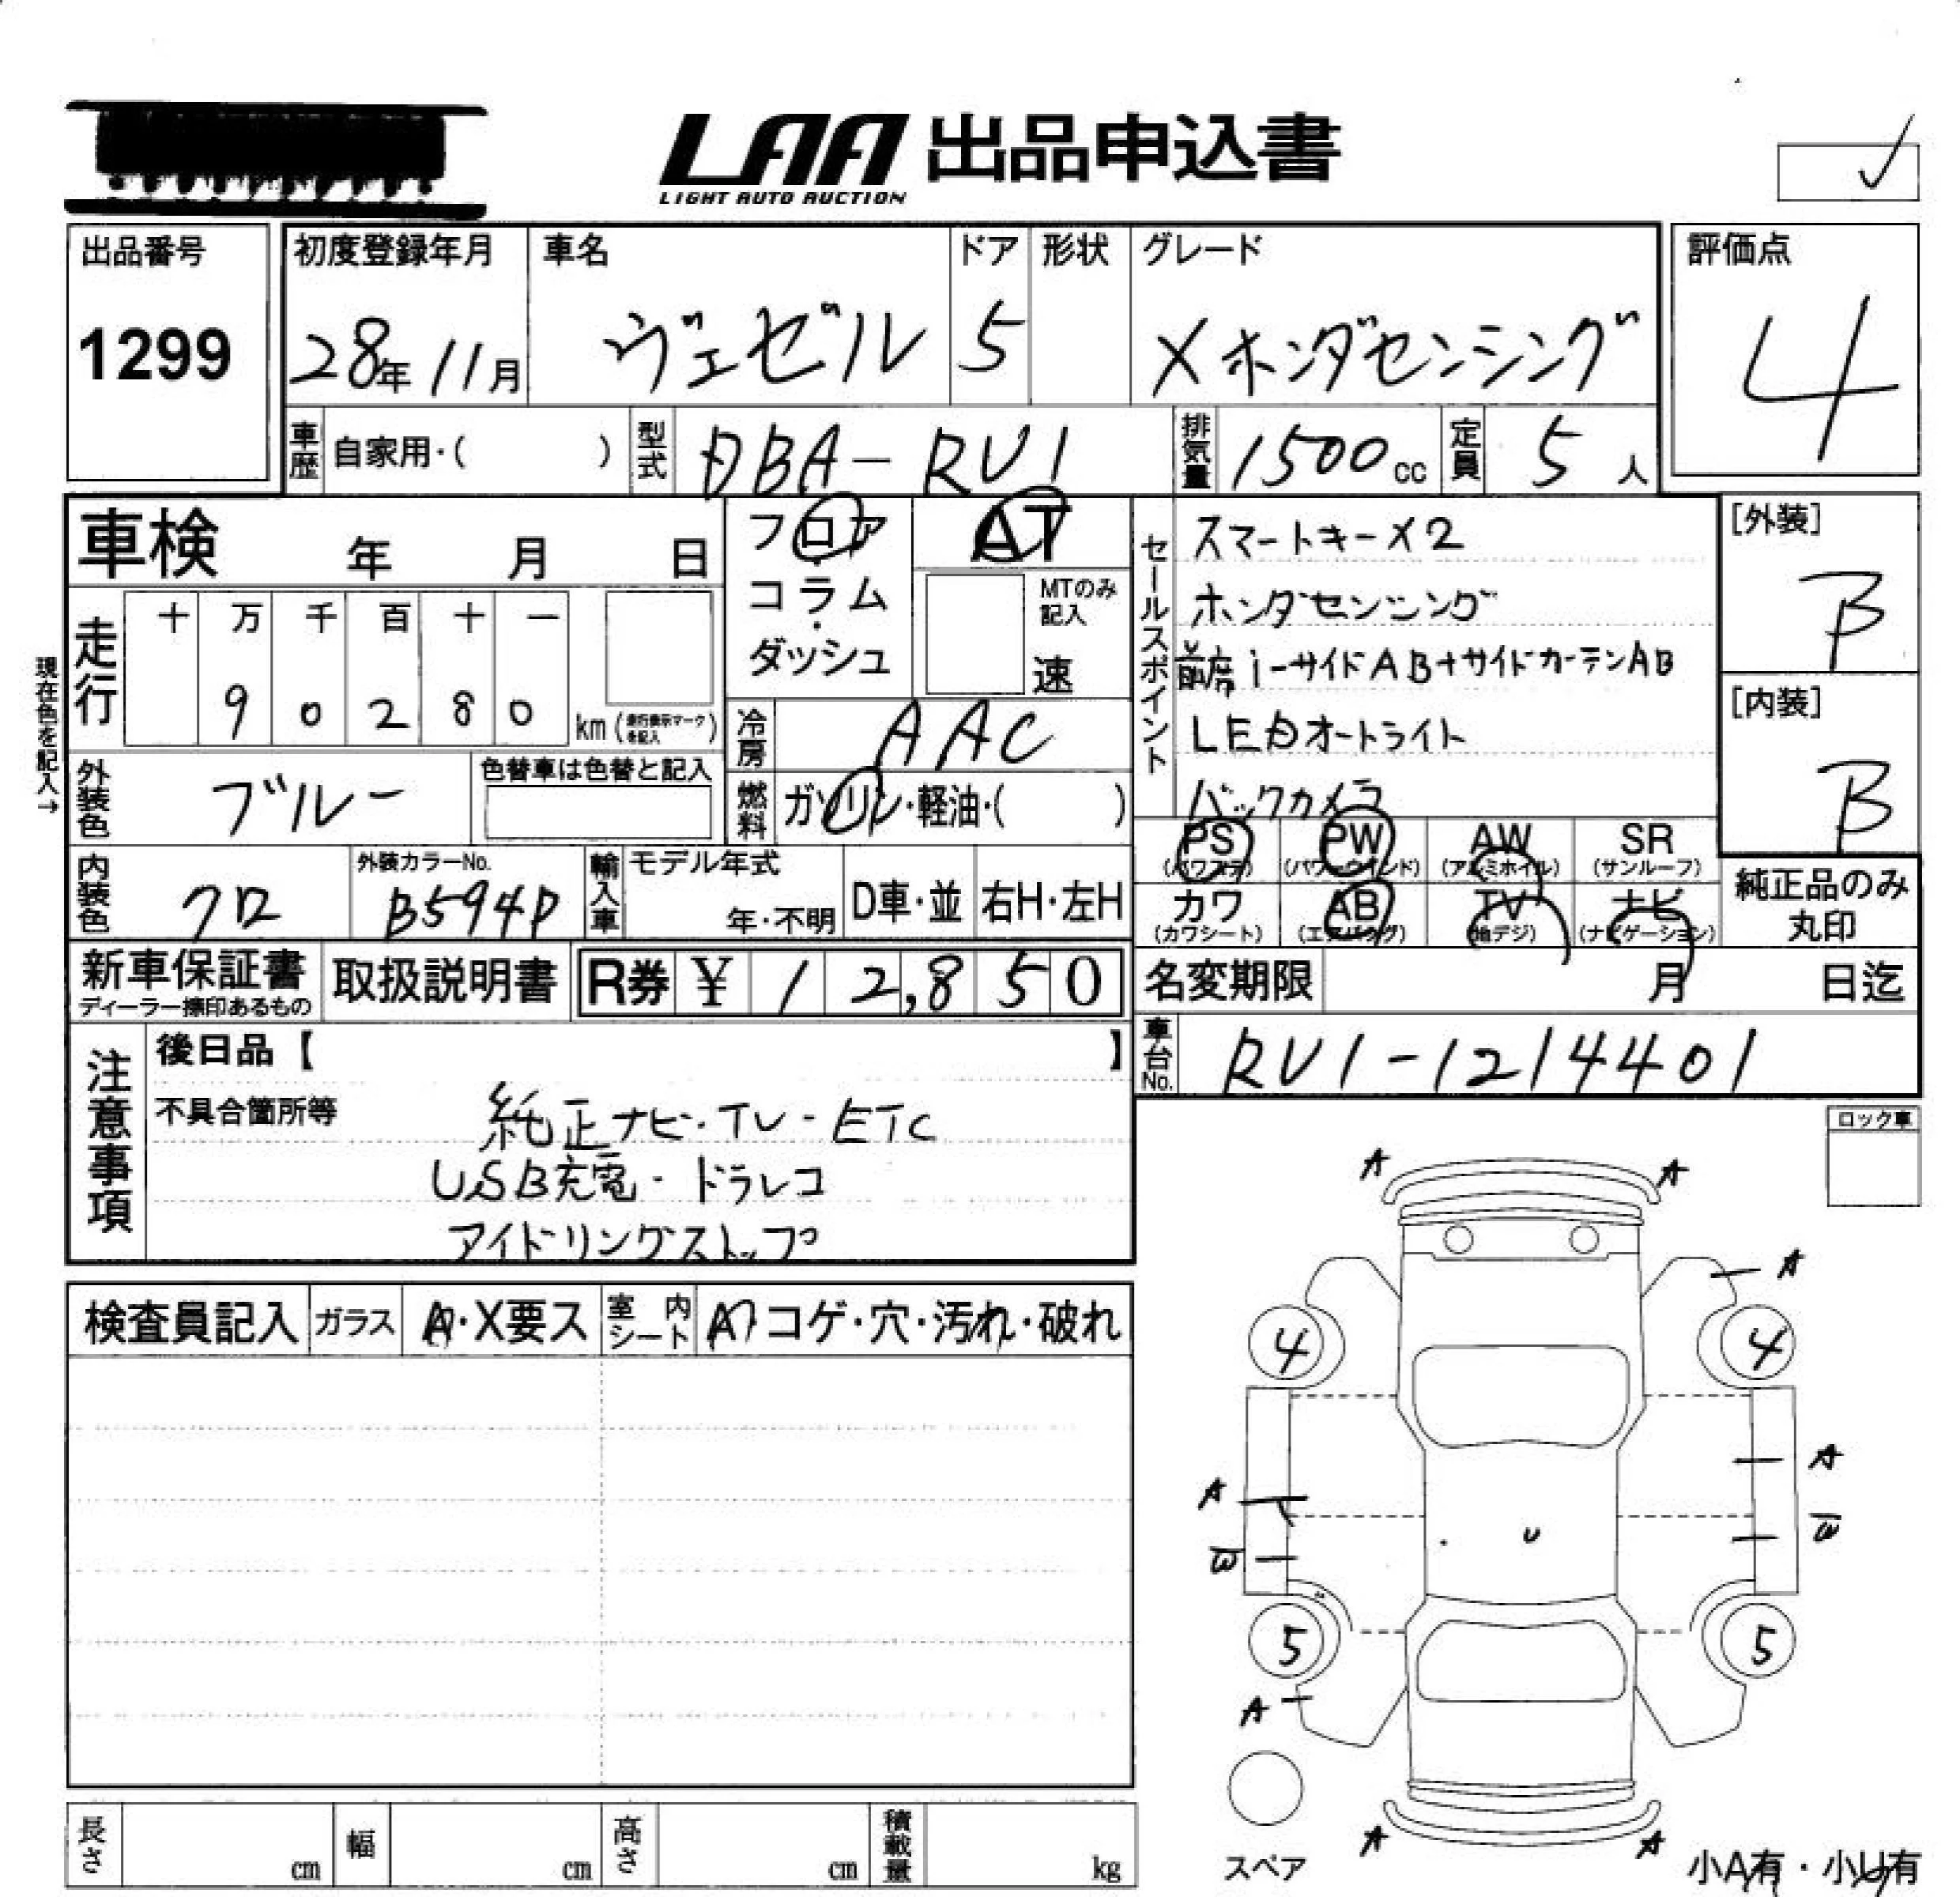 LAA 出品申込書
LIGHT AUTO AUCTION
出品番号
1299
初度登録年月
28年 11月
車名
ヴェゼル
ドア
5
形状
グレード
Xホンダセンシング
評価点
4
車歴 自家用・( )
型式 DBA-RU1
排気量 1500cc
定員 5人
車検 年 月 日
走行
十 万 千 百 十 一
9 0 2 8 0 km
現在色を記入→
フロア
・
コラム
・
ダッシュ
AT
MTのみ
記入
速
冷房 AAC
燃料 ガソリン・軽油・( )
セールスポイント
スマートキー×2
ホンダセンシング
前席i-サイドAB+サイドカーテンAB
LEDオートライト
バックカメラ
[外装]
B
[内装]
B
外装色 ブルー
色替車は色替と記入
内装色 クロ
外装カラーNo.
B594P
輸入車
モデル年式
年・不明
D車・並
右H・左H
PS
(パワステ)
PW
(パワーウインド)
AW
(アルミホイル)
SR
(サンルーフ)
カワ
(カワシート)
AB
(エアバッグ)
TV
(地デジ)
ナビ
(ナビゲーション)
純正品のみ
丸印
新車保証書
ディーラー捺印あるもの
取扱説明書
R券 ¥ 12,850
名変期限 月 日迄
車台No. RU1-1214401
注意事項
後日品【 】
不具合箇所等
純正ナビ・TV・ETC
USB充電・ドラレコ
アイドリングストップ
ロック車
検査員記入
ガラス A・X要ス
室内シート コゲ・穴・汚れ・破れ
A A
A
4 4
A
A
W
W
U
5 5
A
スペア
A A
小A有・小U有
長さ cm
幅 cm
高さ cm
積載量 kg